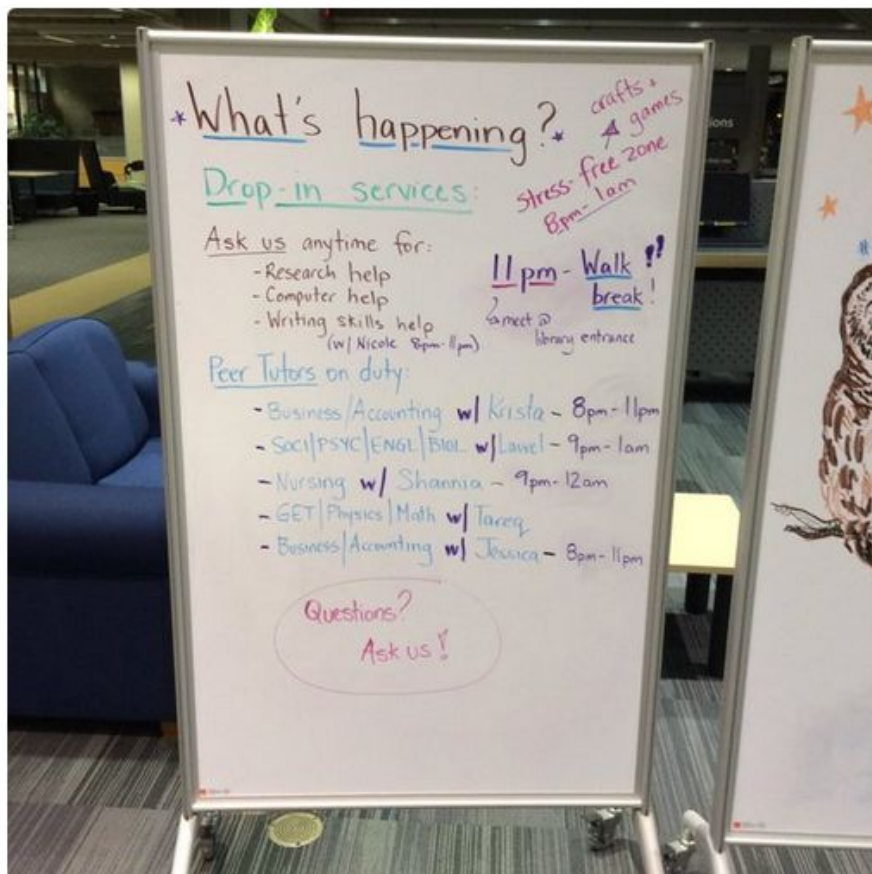 What's happening?
crafts +
games
stress-free zone
8pm-1am
Drop-in services:
Ask us anytime for:
- Research help
- Computer help
- Writing skills help
(w/ Nicole 8pm-11pm)
11pm - Walk !!
break!
meet @
library entrance
Peer Tutors on duty:
- Business/Accounting w/ Krista - 8pm-11pm
- SOCI|PSYC|ENGL|BIOL w/ - 9pm-1am
- Nursing w/ Shannia - 9pm-12am
- GET|Physics|Math w/ Tareq
- Business/Accounting w/ Jessica - 8pm-11pm
Questions?
Ask us!